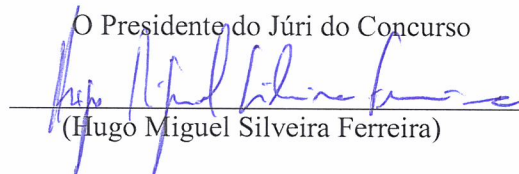 O Presidente do Júri do Concurso
Hugo Miguel Silveira Ferreira
(Hugo Miguel Silveira Ferreira)